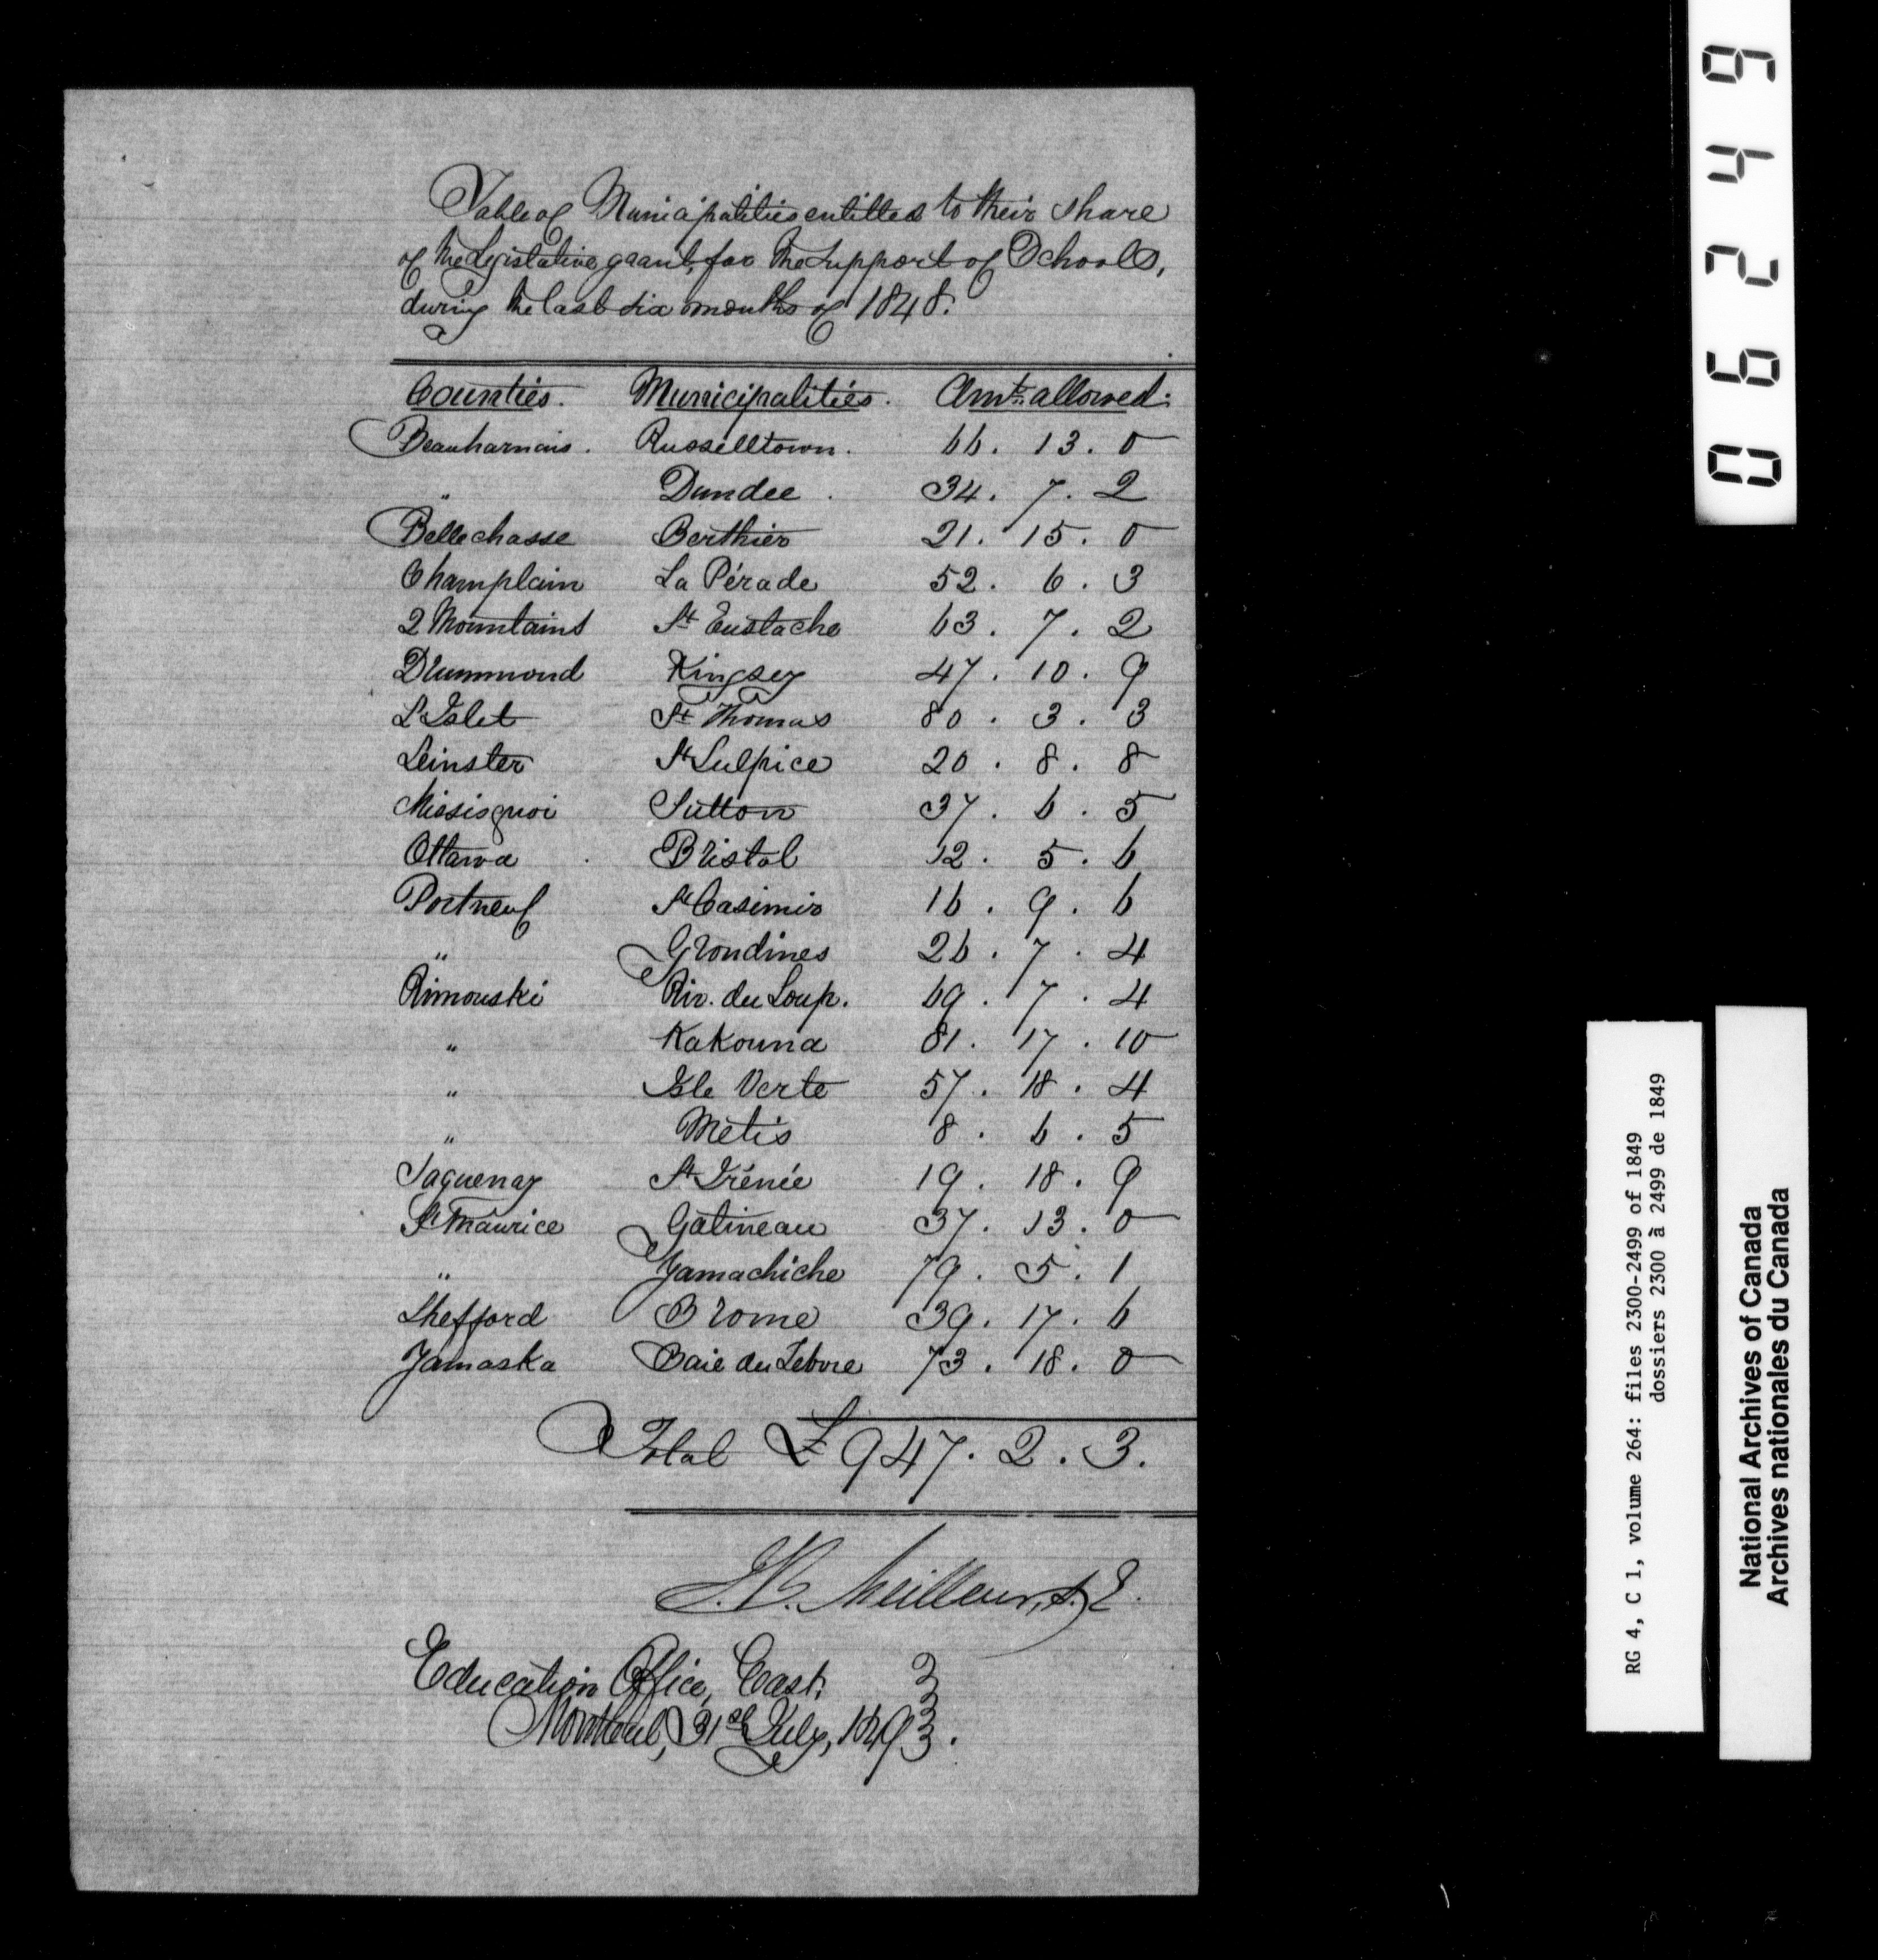 Table of Municipalities entitled to their share
of the Legislative grant, for the support of Schools,
during the last six months of 1848.
Counties. Municipalities. Amts. allowed.
Beauharnais. Russelltown. 66. 13. 0
" Dundee. 34. 7. 2
Bellechasse Berthier 21. 15. 0
Champlain La Pérade 52. 6. 3
2 Mountains St Eustache 63. 7. 2
Drummond Kingsey 47. 10. 9
L'Islet St Thomas 80. 3. 3
Leinster St Sulpice 20. 8. 8
Missisquoi Sutton 37. 6. 5
Ottawa Bristol 12. 5. 6
Portneuf St Casimir 16. 9. 6
" Grondines 26. 7. 4
Rimouski Riv. du Loup. 69. 7. 4
" Kakouna 81. 17. 10
" Isle Verte 57. 18. 4
" Métis 8. 6. 5
Saguenay St Irénée 19. 18. 9
St Maurice Gatineau 37. 13. 0
" Yamachiche 79. 5. 1
Shefford Brome 39. 17. 6
Yamaska Baie du Febvre 73. 18. 0
Total £947. 2. 3.
J.B. Meilleur, S.E.
Education Office, East,
Montreal, 31st July, 1849.
06249
RG 4, C 1, volume 264: files 2300-2499 of 1849
dossiers 2300 à 2499 de 1849
National Archives of Canada
Archives nationales du Canada